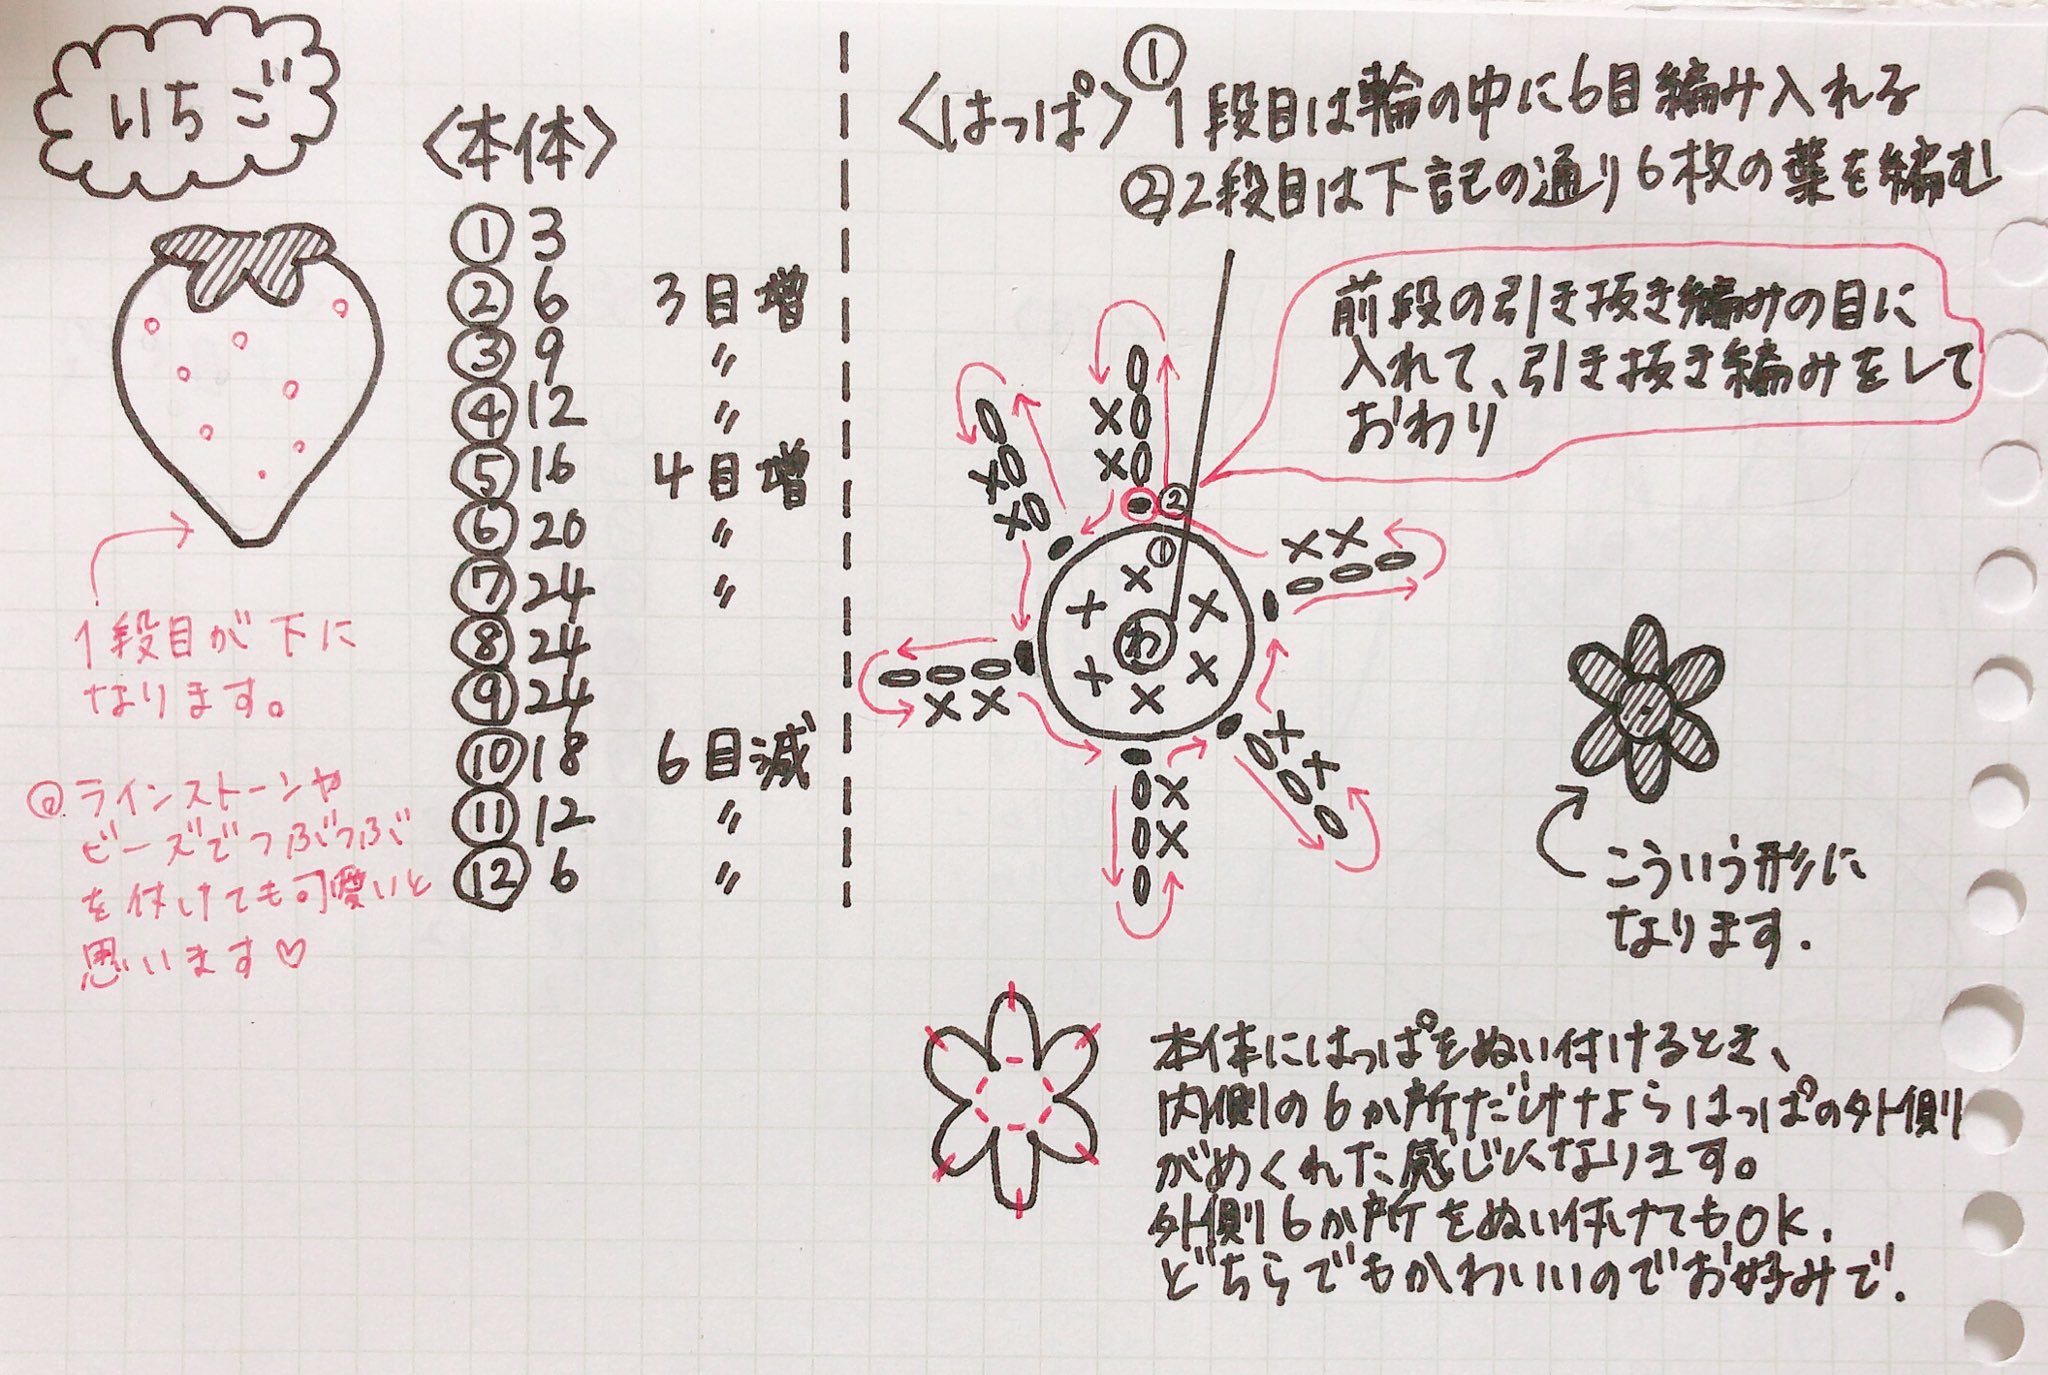 いちご
<本体>
① 3
② 6 3目増
③ 9 〃
④ 12 〃
⑤ 16 4目増
⑥ 20 〃
⑦ 24 〃
⑧ 24
⑨ 24
⑩ 18 6目減
⑪ 12 〃
⑫ 6 〃
1段目が下に
なります。
◎ラインストーンや
ビーズでつぶつぶ
を付けても可愛いと
思います♡
<はっぱ>①1段目は輪の中に6目編み入れる
②2段目は下記の通り6枚の葉を編む
前段の引き抜き編みの目に
入れて、引き抜き編みをして
おわり
②
①
わ
こういう形に
なります.
本体にはっぱをぬい付けるとき、
内側の6か所だけならはっぱの外側
がめくれた感じになります。
外側6か所をぬい付けてもOK.
どちらでもかわいいのでお好みで.